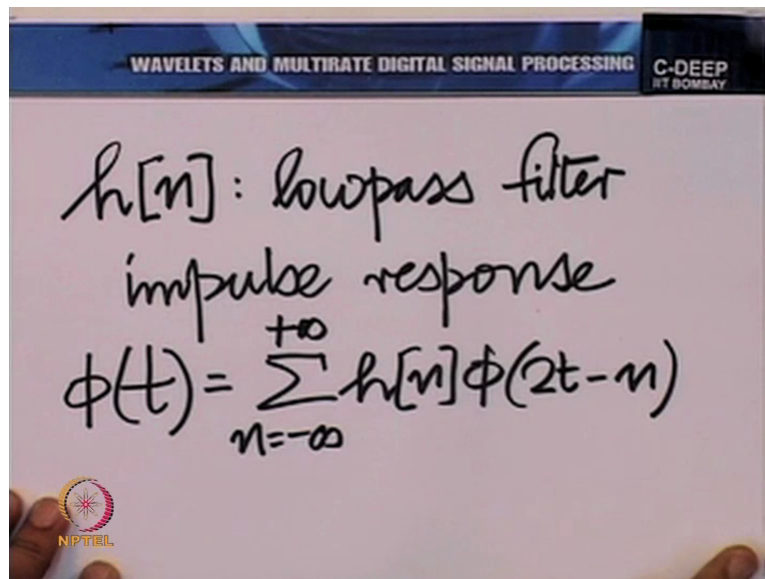 WAVELETS AND MULTIRATE DIGITAL SIGNAL PROCESSING
C-DEEP
IIT BOMBAY
h[n]: lowpass filter
impulse response
+∞
ϕ(t) = Σ h[n]ϕ(2t-n)
n=-∞
NPTEL